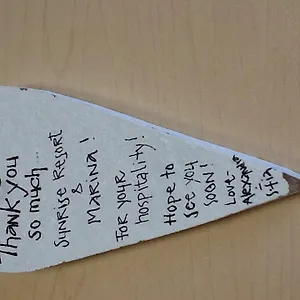 Thank you
so much
Sunrise Resort
&
Marina!
For your
hospitality!
Hope to
see you
soon!
Love